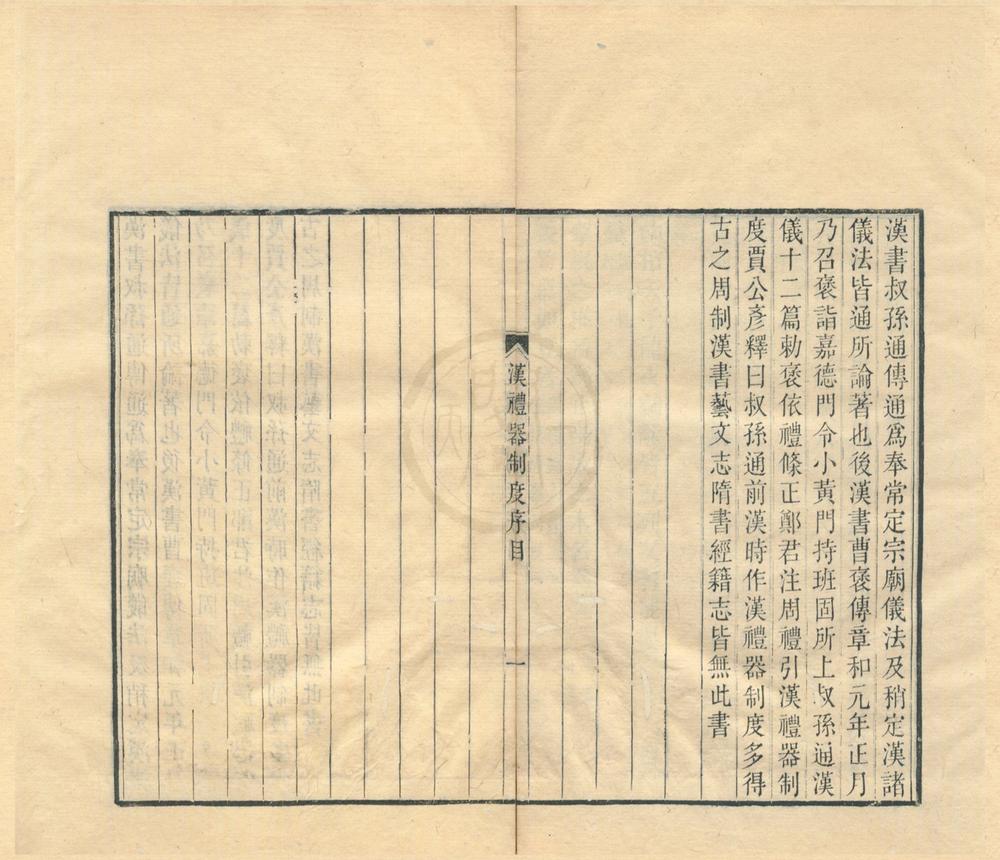 漢書叔孫通傳通爲奉常定宗廟儀法及稍定漢諸
儀法皆通所論著也後漢書曹褒傳章和元年正月
乃召褒詣嘉德門令小黃門持班固所上叔孫通漢
儀十二篇勅褒依禮條正鄭君注周禮引漢禮器制
度賈公彥釋曰叔孫通前漢時作漢禮器制度多得
古之周制漢書藝文志隋書經籍志皆無此書
漢禮器制度序目
一